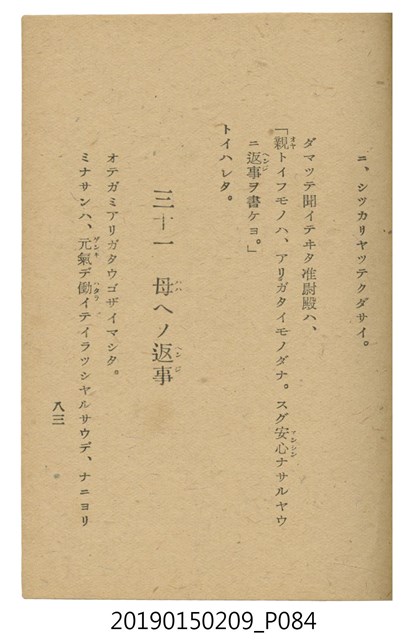 ニ、シツカリヤツテクダサイ。
ダマツテ聞イテヰタ准尉殿ハ、
「親トイフモノハ、アリガタイモノダナ。スグ安心ナサルヤウ
ニ返事ヲ書ケヨ。」
トイハレタ。
三十一 母ヘノ返事
オテガミアリガタウゴザイマシタ。
ミナサンハ、元氣デ働イテイラツシヤルサウデ、ナニヨリ
八三
20190150209_P084